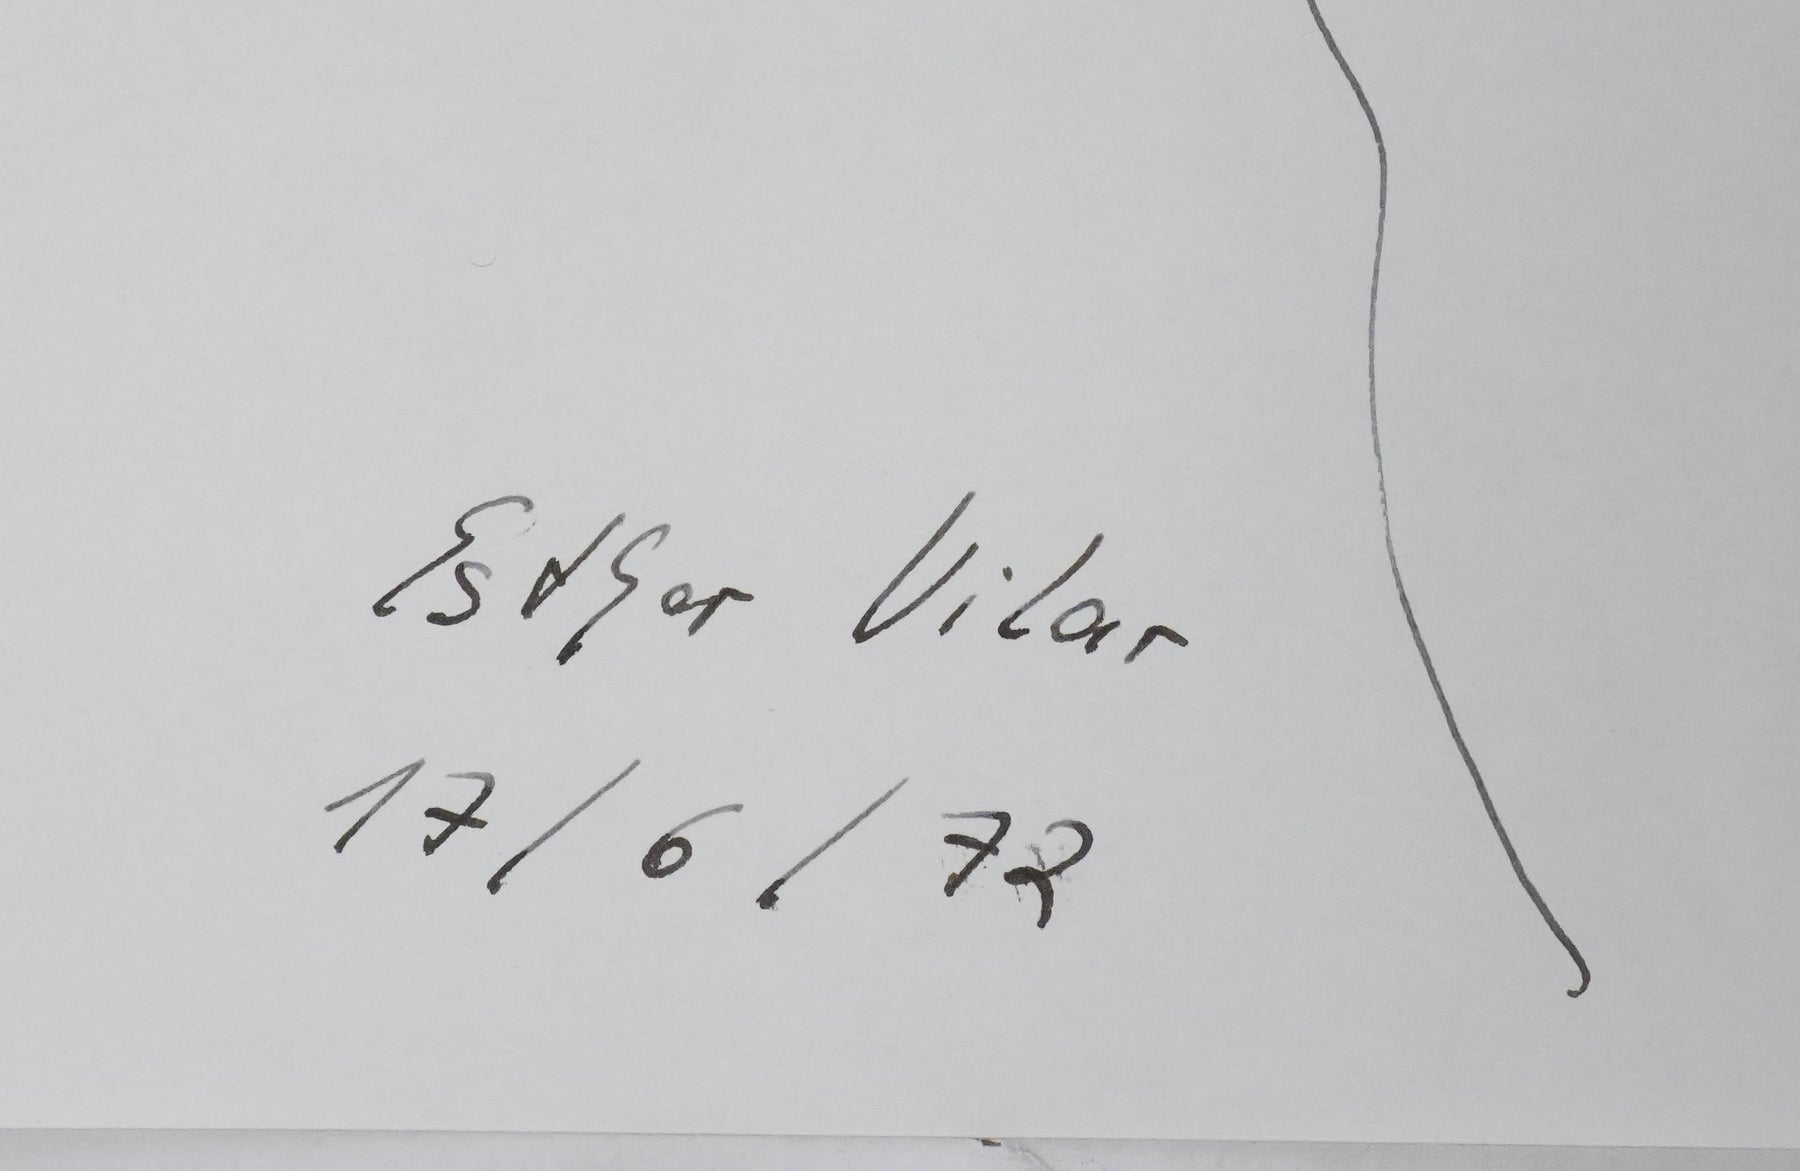 Esther Vilar
17/6/72